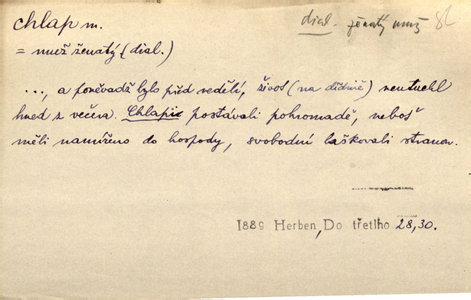 chlap m.
dial. ženatý muž
= muž ženatý (dial.)
..., a poněvadž bylo před nedělí, život (na dědině) neutuchl
hned z večera. Chlapi postávali pohromadě, neboť
měli namířeno do hospody, svobodní laškovali stranou.
1889 Herben, Do třetího 28,30.